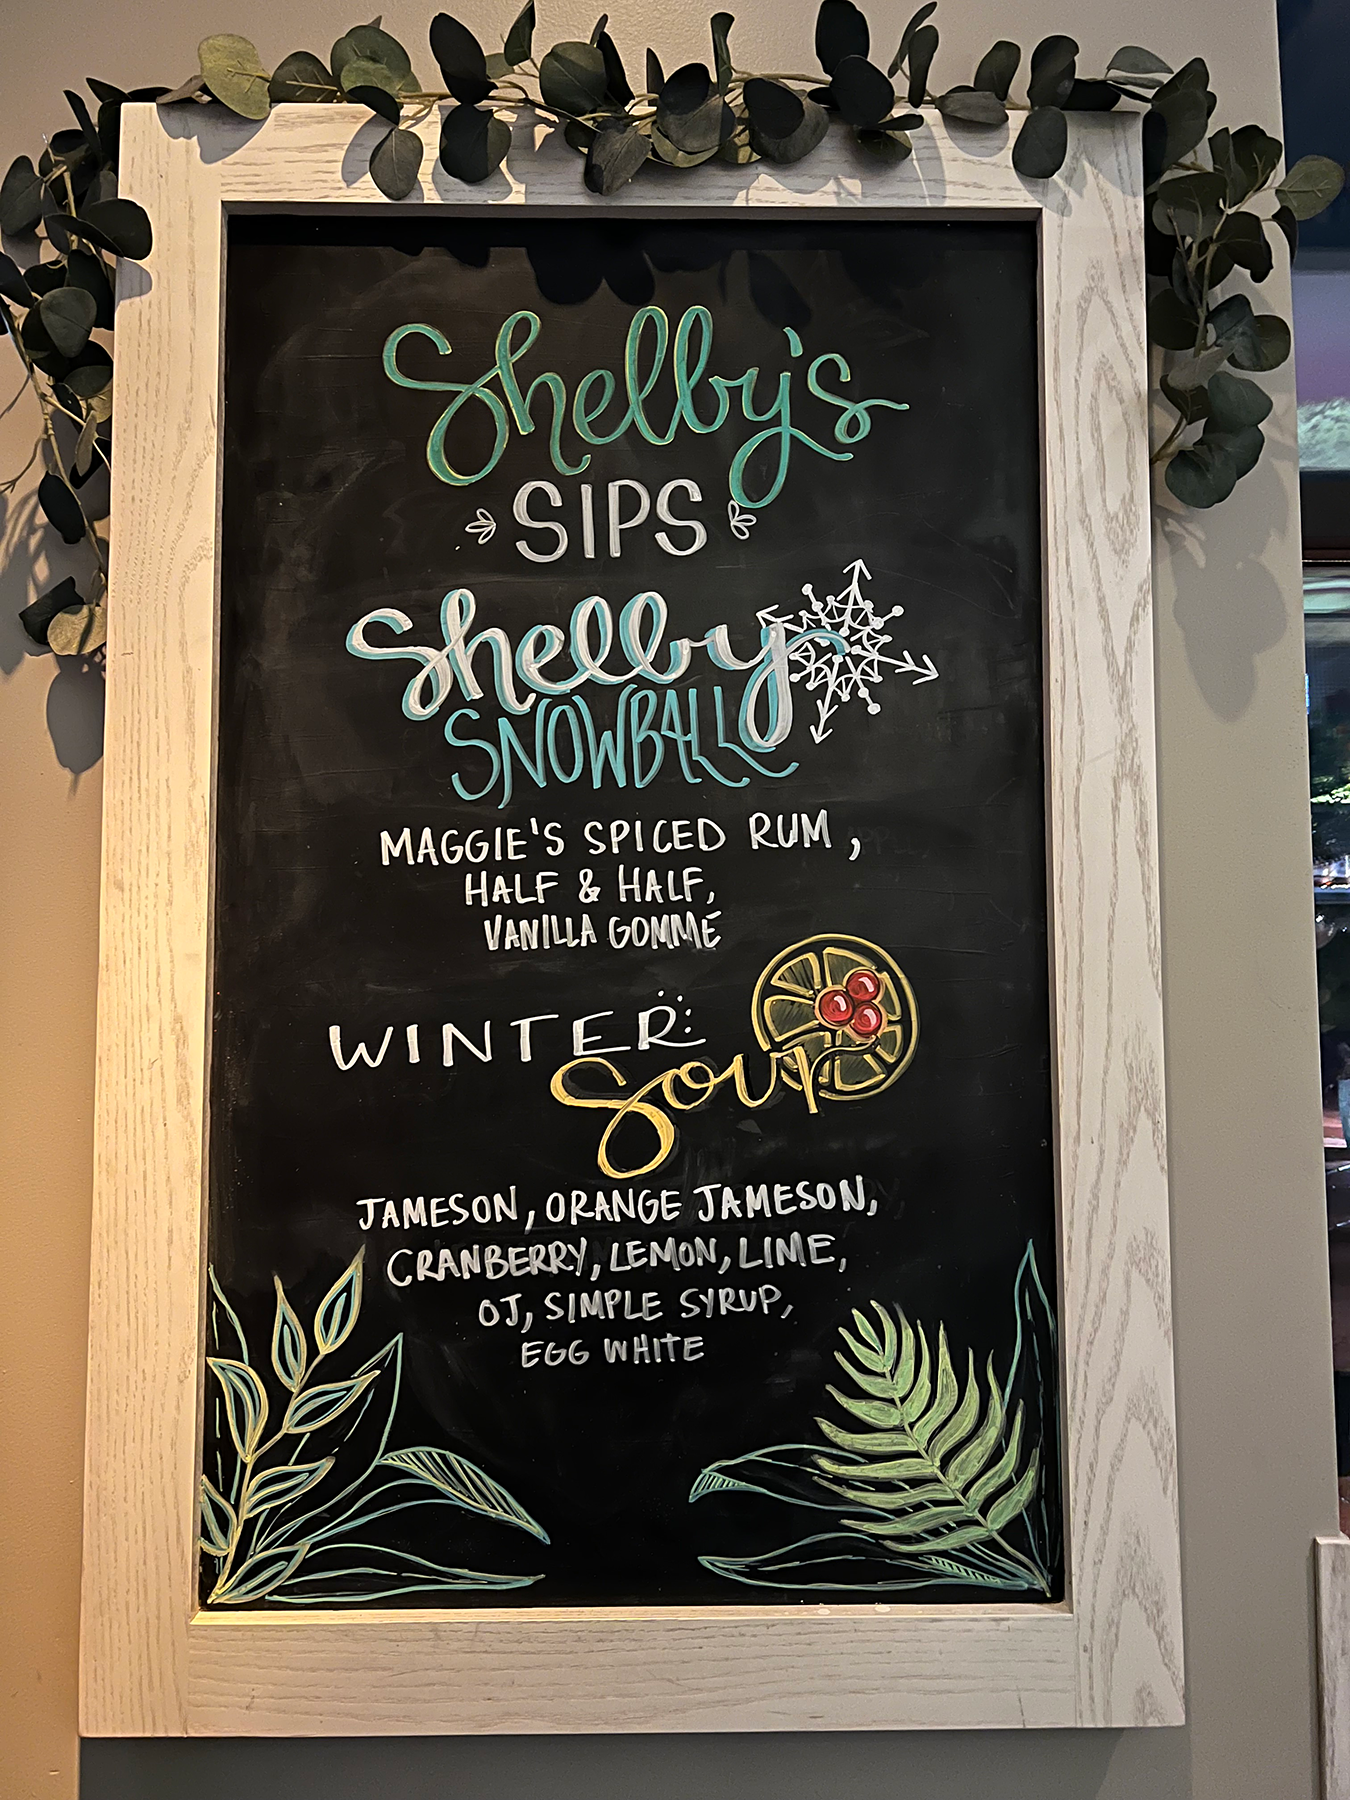 Shelby's
SIPS
Shelby
SNOWBALL
MAGGIE'S SPICED RUM,
HALF & HALF,
VANILLA GOMMÉ
WINTER
Sour
JAMESON, ORANGE JAMESON,
CRANBERRY, LEMON, LIME,
OJ, SIMPLE SYRUP,
EGG WHITE